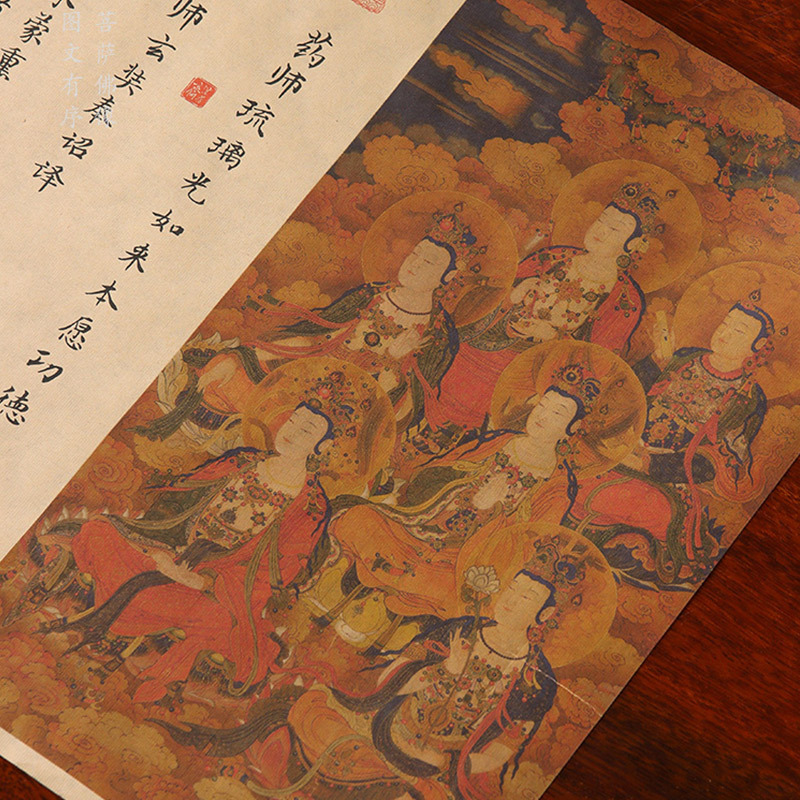 药师琉璃光如来本愿功德
师玄奘奉诏译
蒙
菩萨佛
图文有序